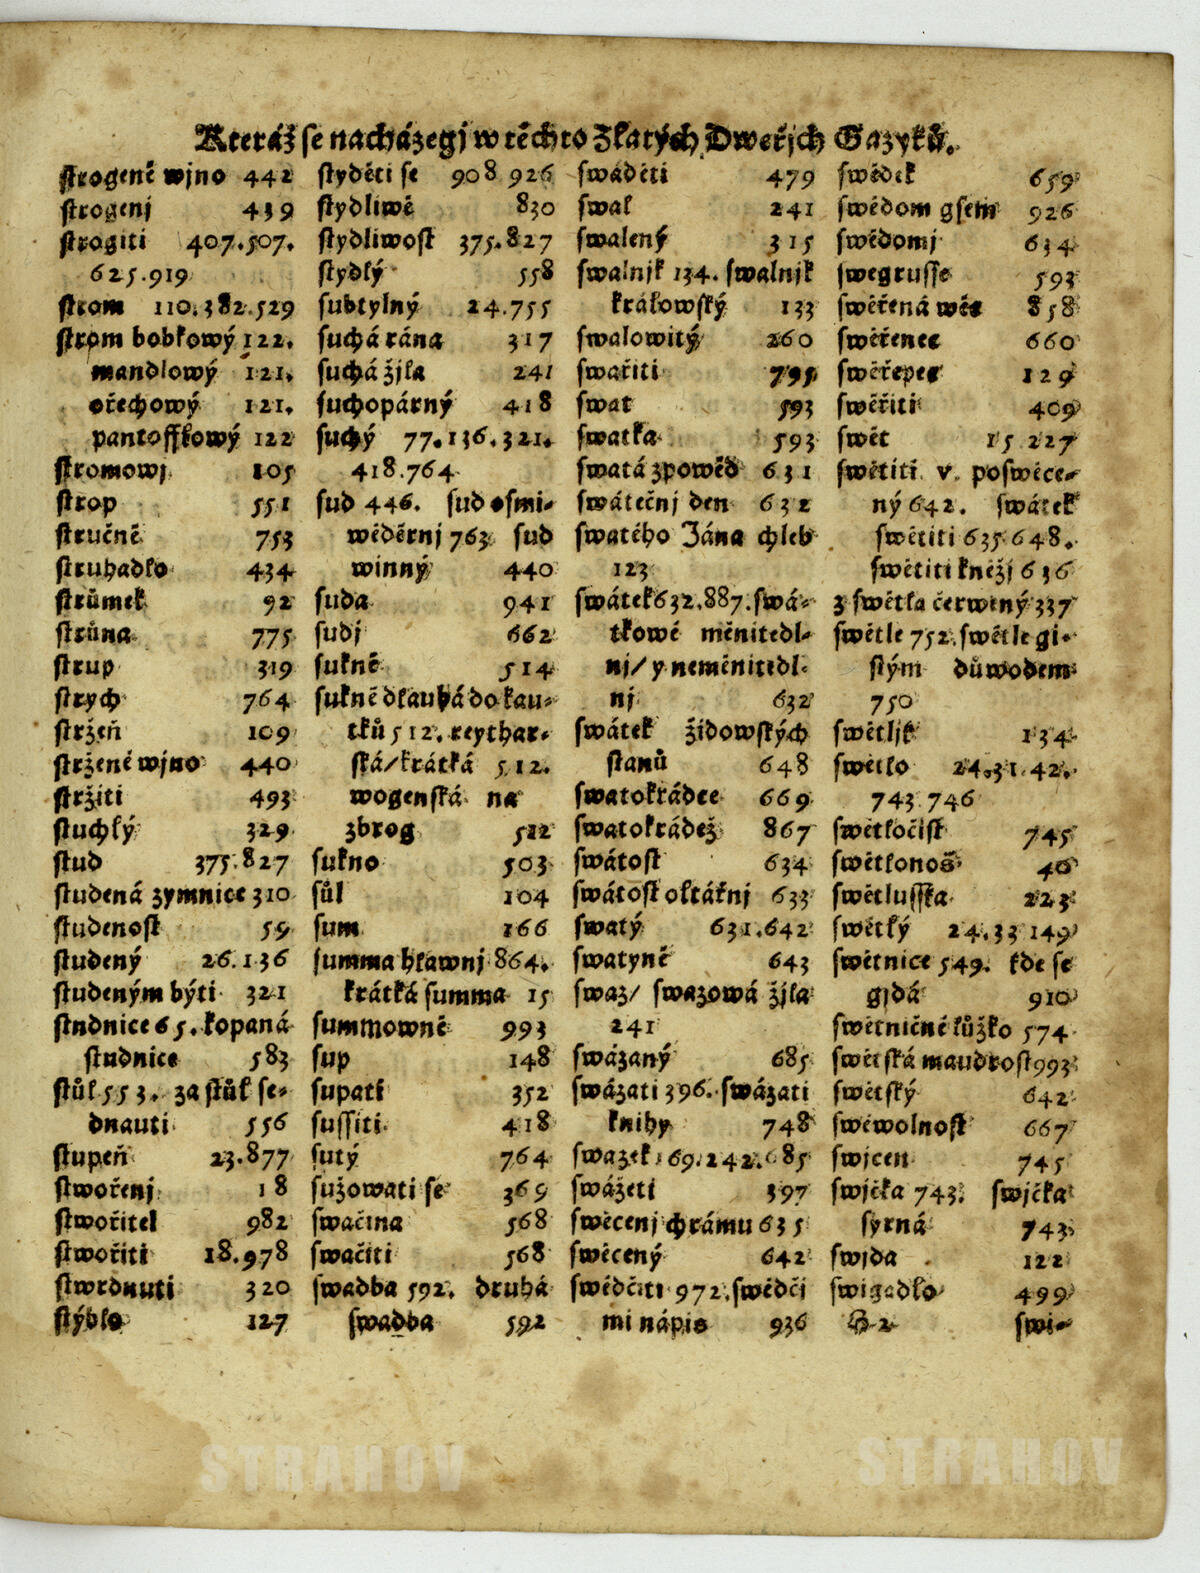 Kteráž se nacházegj w těchto Zlatých Dweřjch Gazyků.
strogené wjno 442
strogenj 439
strogiti 407.507.
625.919
strom 110.382.529
strom bobkowý 122.
mandlowý 121.
ořechowý 121.
pantofflowý 122
stromowj 105
strop 551
stručně 753
struhadlo 434
strůmek 92
strůna 775
strup 319
strych 764
stržeň 109
stržené wjno 440
stržiti 493
stuchlý 329
stud 375.827
studená zymnice 310
studenost 59
studený 26.136
studeným býti 321
stndnice 65. kopaná
studnice 583
stůl 553. za stůl se-
dnauti 556
stupeň 23.877
stwořenj 18
stwořitel 982
stwořiti 18.978
stwrdnuti 320
stýblo 127
styděti se 908 926
stydliwě 830
stydliwost 375.827
stydký 558
subtylný 24.755
suchá rána 317
suchá žjla 241
suchopárný 418
suchý 77.136.321.
418.764
sud 446. sud osmi-
wěděrnj 763 sud
winný 440
suda 941
sudj 662
sukně 514
sukně dlauhá do kau-
tků 512. reythar-
ská/krátká 512.
wogenská na
zbrog 512
sukno 503
sůl 104
sum 166
summa hlawnj 864.
krátká summa 15
summowně 993
sup 148
supati 352
sussiti 418
sutý 764
sužowati se 369
swačina 568
swačiti 568
swadba 592. druhá
swadba 592
swáděti 479
swal 241
swalený 315
swalnjk 134. swalnjk
králowský 133
swalowitý 260
swařiti 795
swat 593
swatka 593
swatá zpowěd 631
swátečnj den 632
swatého Jána chleb
123
swátek 632.887. swá-
tkowé měnitedl-
nj/ y neměnitedl-
nj 632
swátek židowských
stanů 648
swatokrádce 669
swatokrádež 867
swátost 634
swátost oltářnj 633
swatý 631.642
swatyně 643
swaz/ swazowá žjla
241
swázaný 685
swázati 396. swázati
knihy 748
swazek 169.242.685
swážeti 397
swěcenj chrámu 635
swěcený 642
swědčiti 972. swědčj
mi nápis 936
swědek 659
swědom gsem 926
swědomj 634
swegrusse 593
swěřená wěc 858
swěřenec 660
swěřepec 129
swěřiti 409
swět 15 227
swětiti v. poswěce-
ný 642. swátek
swětiti 635.648.
swětiti kněžj 636
z swětla čerwený 337
swětle 752. swětle gi-
stým důwodem
750
swětljk 134
swětlo 24.31.42.
743.746
swětločist 745
swětlonoš 40
swětlusska 223
swětlý 24.33 149
swětnice 549. kde se
gjdá 910
swětničné lůžko 574
swětská maudrost 993
swětský 642
swéwolnost 667
swjcen 745
swjčka 743. swjčka
syrná 743
swjda 122
swigadlo 499
H 2 swi-
STRAHOV STRAHOV